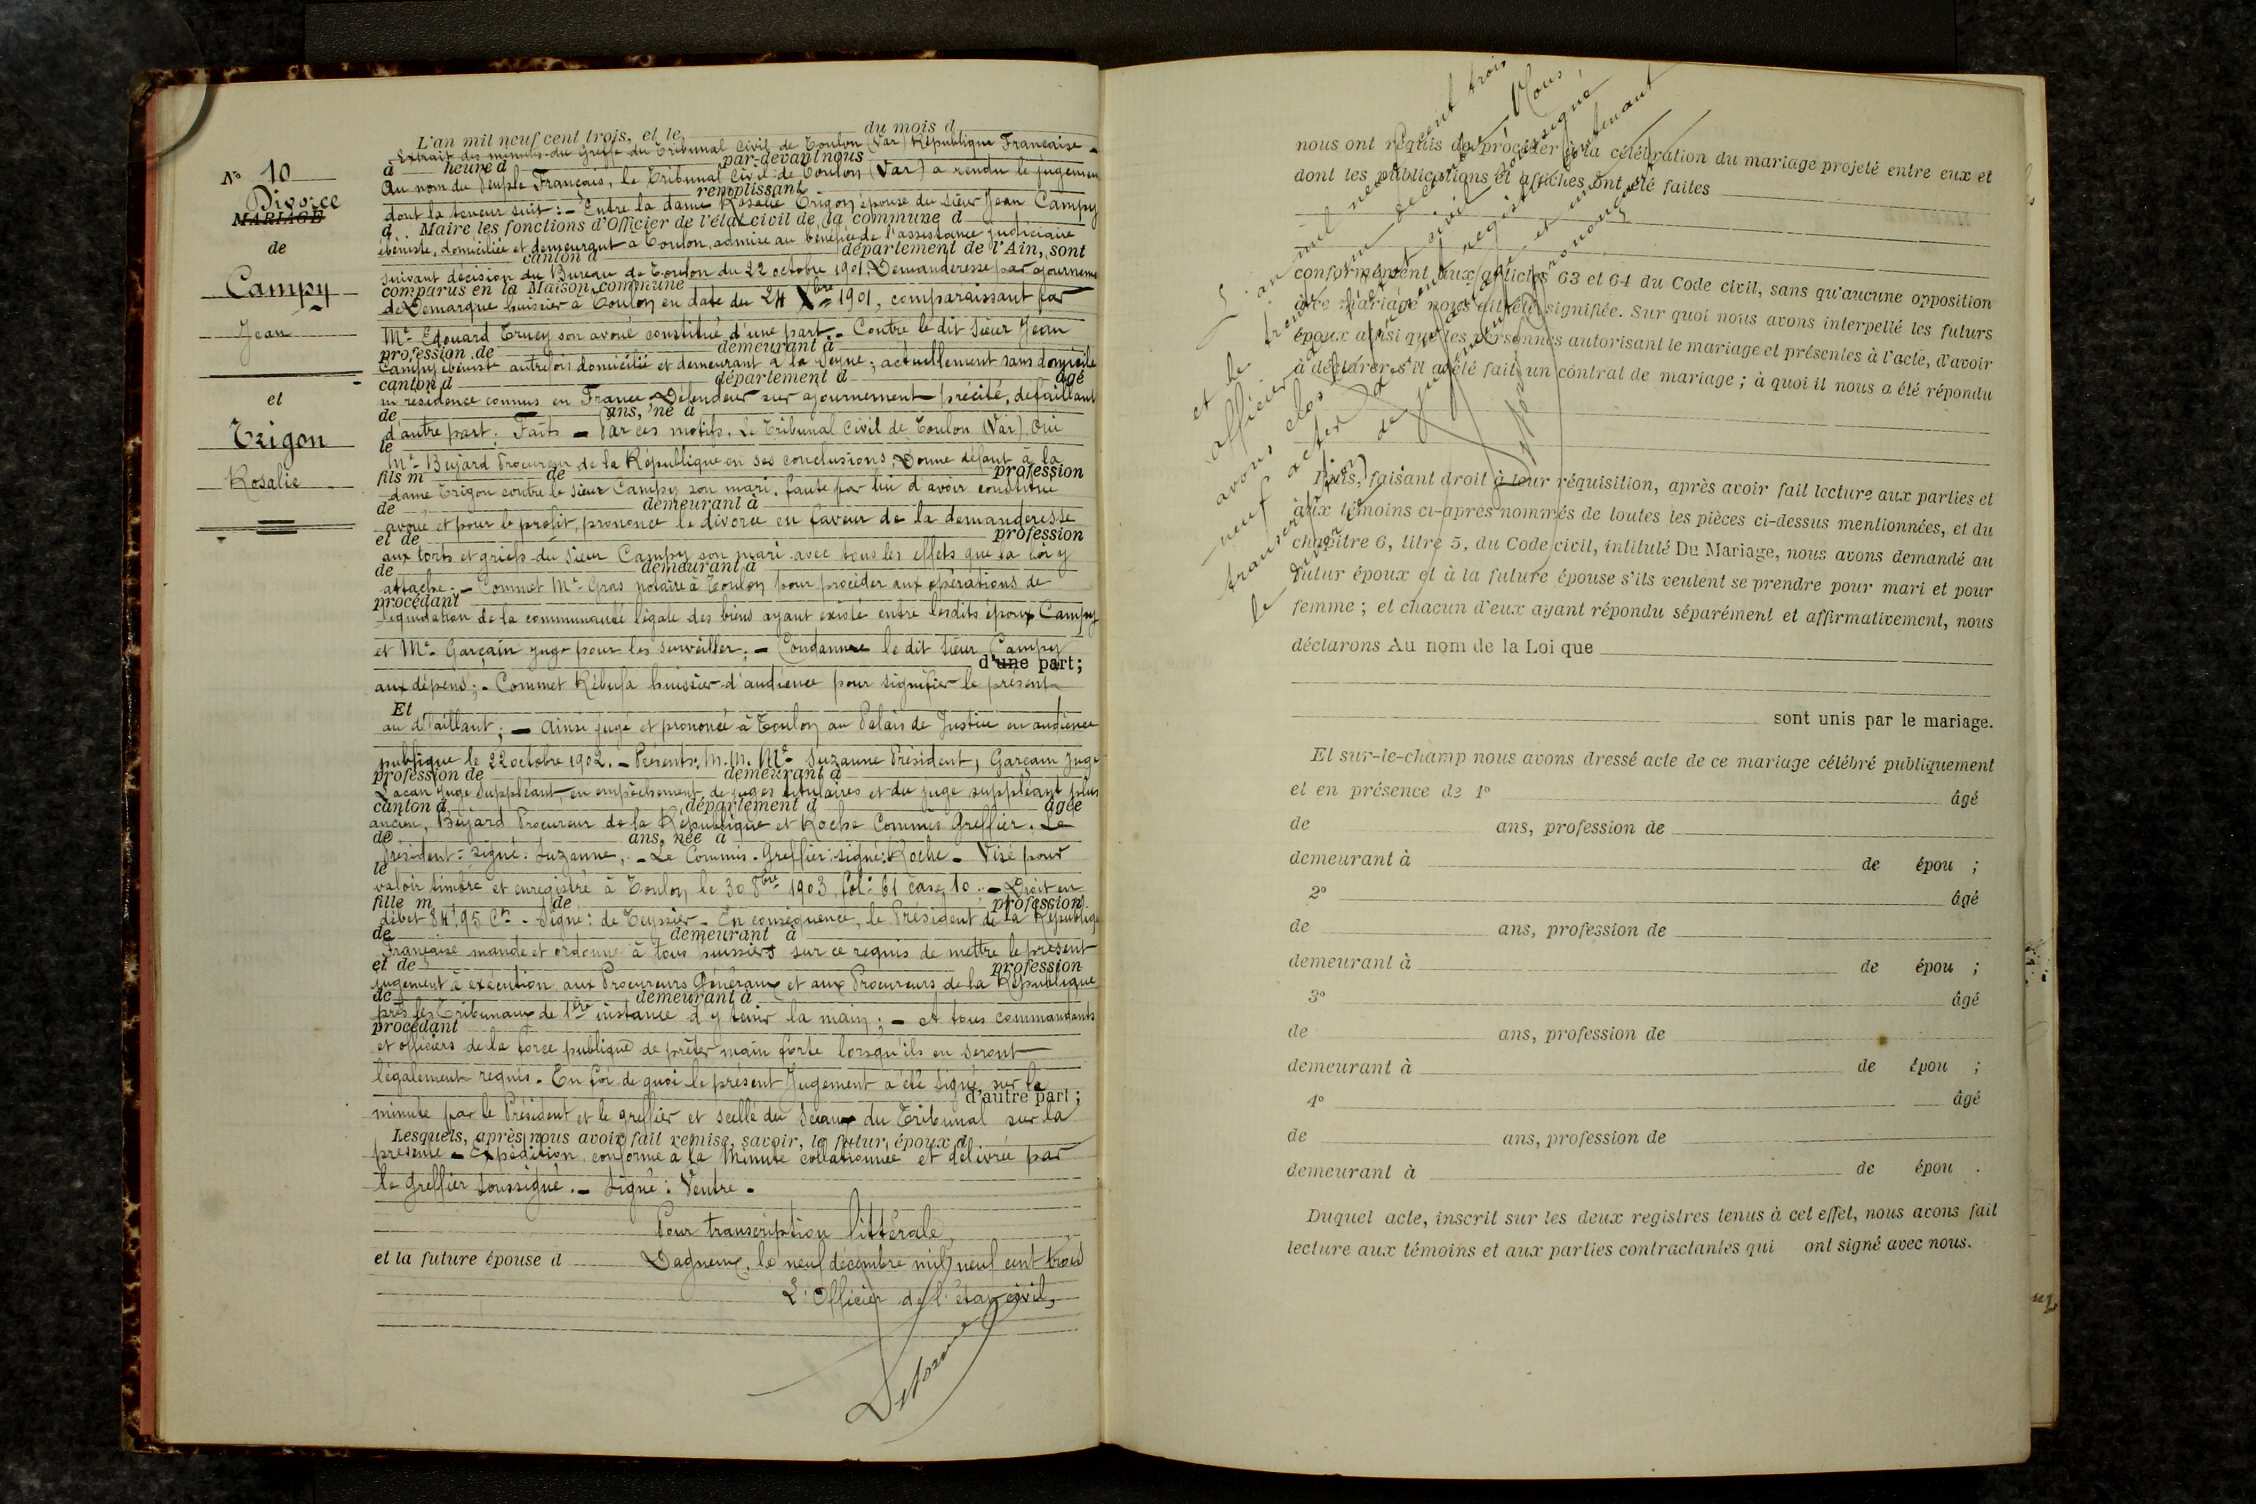 N° 10
Divorce
MARIAGE
de
Campy
Jean
et
Trigon
Rosalie
L'an mil neuf cent trois, et le du mois d
Extrait des minutes du Greffe du Tribunal Civil de Toulon (Var) République Française
à heure d par-devant nous
Au nom du Peuple Français, le Tribunal Civil de Toulon (Var) a rendu le jugement
remplissant
dont la teneur suit : - Entre la dame Rosalie Trigon épouse du sieur Jean Campy
d Maire les fonctions d'Officier de l'état civil de la commune d
ébéniste, domiciliée et demeurant à Toulon, admise au bénéfice de l'assistance judiciaire
canton d département de l'Ain, sont
suivant décision du Bureau de Toulon du 22 octobre 1901. Demanderesse par ajournement
comparus en la Maison commune
de Demarque huissier à Toulon en date du 24 Xbre 1901, comparaissant par
Me Edouard Trucy son avoué constitué d'une part. - Contre le dit sieur Jean
profession de demeurant à
Campy ébéniste autrefois domicilié et demeurant à la Seyne, actuellement sans domicile
canton d département d âgé
ni résidence connus en France, Défendeur sur ajournement précité, défaillant
de ans, né à
d'autre part. Faits - Par ces motifs, Le Tribunal Civil de Toulon (Var) Oui
le
Mr Bujard Procureur de la République en ses conclusions, Donne défaut à la
fils m de profession
dame Trigon contre le sieur Campy son mari, faute par lui d'avoir constitué
de demeurant à
avoué et pour le profit, prononce le divorce en faveur de la demanderesse
et de profession
aux torts et griefs du sieur Campy son mari avec tous les effets que la loi y
de demeurant à
attache. - Commet Me Gras notaire à Toulon pour procéder aux opérations de
procédant
liquidation de la communauté légale des biens ayant existé entre lesdits époux Campy
et Mr Garçain juge pour les surveiller. - Condamne le dit sieur Campy
d'une part;
aux dépens; - Commet Rébufa huissier d'audience pour signifier le présent
Et
au défaillant; - Ainsi jugé et prononcé à Toulon au Palais de Justice en audience
publique le 22 octobre 1902. - Présents: M.M. Mr Suzanne Président, Garçain Juge
profession de demeurant à
Lacan juge suppléant en empêchement de juges titulaires et du juge suppléant plus
canton d département d âgée
ancien, Bujard Procureur de la République et Roche Commis Greffier. Le
de ans, née à
Président: signé: Suzanne. - Le Commis. Greffier: signé: Roche - Visé pour
le
valoir timbre et enregistré à Toulon, le 30 8bre 1903, fol° 61 case 10. - Droit en
fille m de profession
débet 84f,95 Cs - Signé: de Teyssier - En conséquence, le Président de la République
de demeurant à
Française mande et ordonne à tous huissiers sur ce requis de mettre le présent
et de profession
jugement à exécution aux Procureurs Généraux et aux Procureurs de la République
de demeurant à
près les Tribunaux de 1ère instance d'y tenir la main; - et tous commandants
procédant
et officiers de la force publique de prêter main forte lorsqu'ils en seront
légalement requis. En foi de quoi le présent Jugement a été signé sur la
d'autre part;
minute par le Président et le greffier et scellé du Sceau du Tribunal sur la
Lesquels, après nous avoir fait remise, savoir, le futur époux d
présente - Expédition conforme à la Minute collationnée et délivrée par
le Greffier soussigné. - Signé: Ventre.
Pour transcription littérale,
et la future épouse d Dagneux, le neuf décembre mil neuf cent trois
L'Officier de l'état civil,
nous ont requis de procéder à la célébration du mariage projeté entre eux et
dont les publications et affiches ont été faites
conformément aux articles 63 et 64 du Code civil, sans qu'aucune opposition
à ce mariage nous ait été signifiée. Sur quoi nous avons interpellé les futurs
époux ainsi que les personnes autorisant le mariage et présentes à l'acte, d'avoir
à déclarer s'il a été fait un contrat de mariage ; à quoi il nous a été répondu
L'an mil neuf cent trois
et le trente un décembre - Nous,
officier de l'état civil soussigné,
avons clos le présent registre contenant
neuf actes de mariage et une
transcription de jugement prononçant
le divorce
Puis, faisant droit à leur réquisition, après avoir fait lecture aux parties et
aux témoins ci-après nommés de toutes les pièces ci-dessus mentionnées, et du
chapitre 6, titre 5, du Code civil, intitulé Du Mariage, nous avons demandé au
futur époux et à la future épouse s'ils veulent se prendre pour mari et pour
femme ; et chacun d'eux ayant répondu séparément et affirmativement, nous
déclarons Au nom de la Loi que
sont unis par le mariage.
Et sur-le-champ nous avons dressé acte de ce mariage célébré publiquement
et en présence de 1° âgé
de ans, profession de
demeurant à de épou ;
2° âgé
de ans, profession de
demeurant à de épou ;
3° âgé
de ans, profession de
demeurant à de épou ;
4° âgé
de ans, profession de
demeurant à de épou .
Duquel acte, inscrit sur les deux registres tenus à cet effet, nous avons fait
lecture aux témoins et aux parties contractantes qui ont signé avec nous.